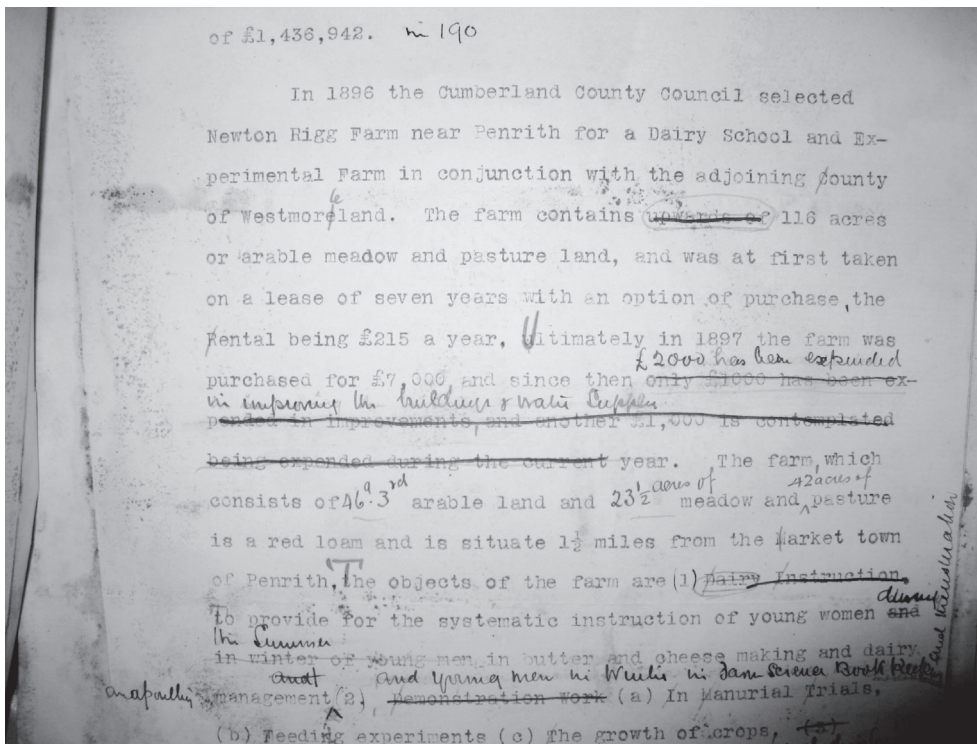 of £1,436,942. in 190
In 1896 the Cumberland County Council selected
Newton Rigg Farm near Penrith for a Dairy School and Ex-
perimental Farm in conjunction with the adjoining county
of Westmoreland. The farm contains upwards of 116 acres
or arable meadow and pasture land, and was at first taken
on a lease of seven years with an option of purchase, the
Rental being £215 a year. Ultimately in 1897 the farm was
£2000 has been expended
purchased for £7,000, and since then only £1000 has been ex-
in improving the buildings & water Supply
pended in improvements, and another £1,000 is contemplated
being expended during the current year. The farm, which
consists of 46a. 3rd arable land and 23½ acres of meadow and 42 acres of pasture
is a red loam and is situate 1½ miles from the Market town
of Penrith, The objects of the farm are (1) Dairy Instruction.
To provide for the systematic instruction of young women and during
the Summer
in winter of young men in butter and cheese making and dairy
and young men in Winter in Farm Science Book Keeping
management (2) Demonstration Work (a) In Manurial Trials,
(b) Feeding experiments (c) The growth of crops, (3)